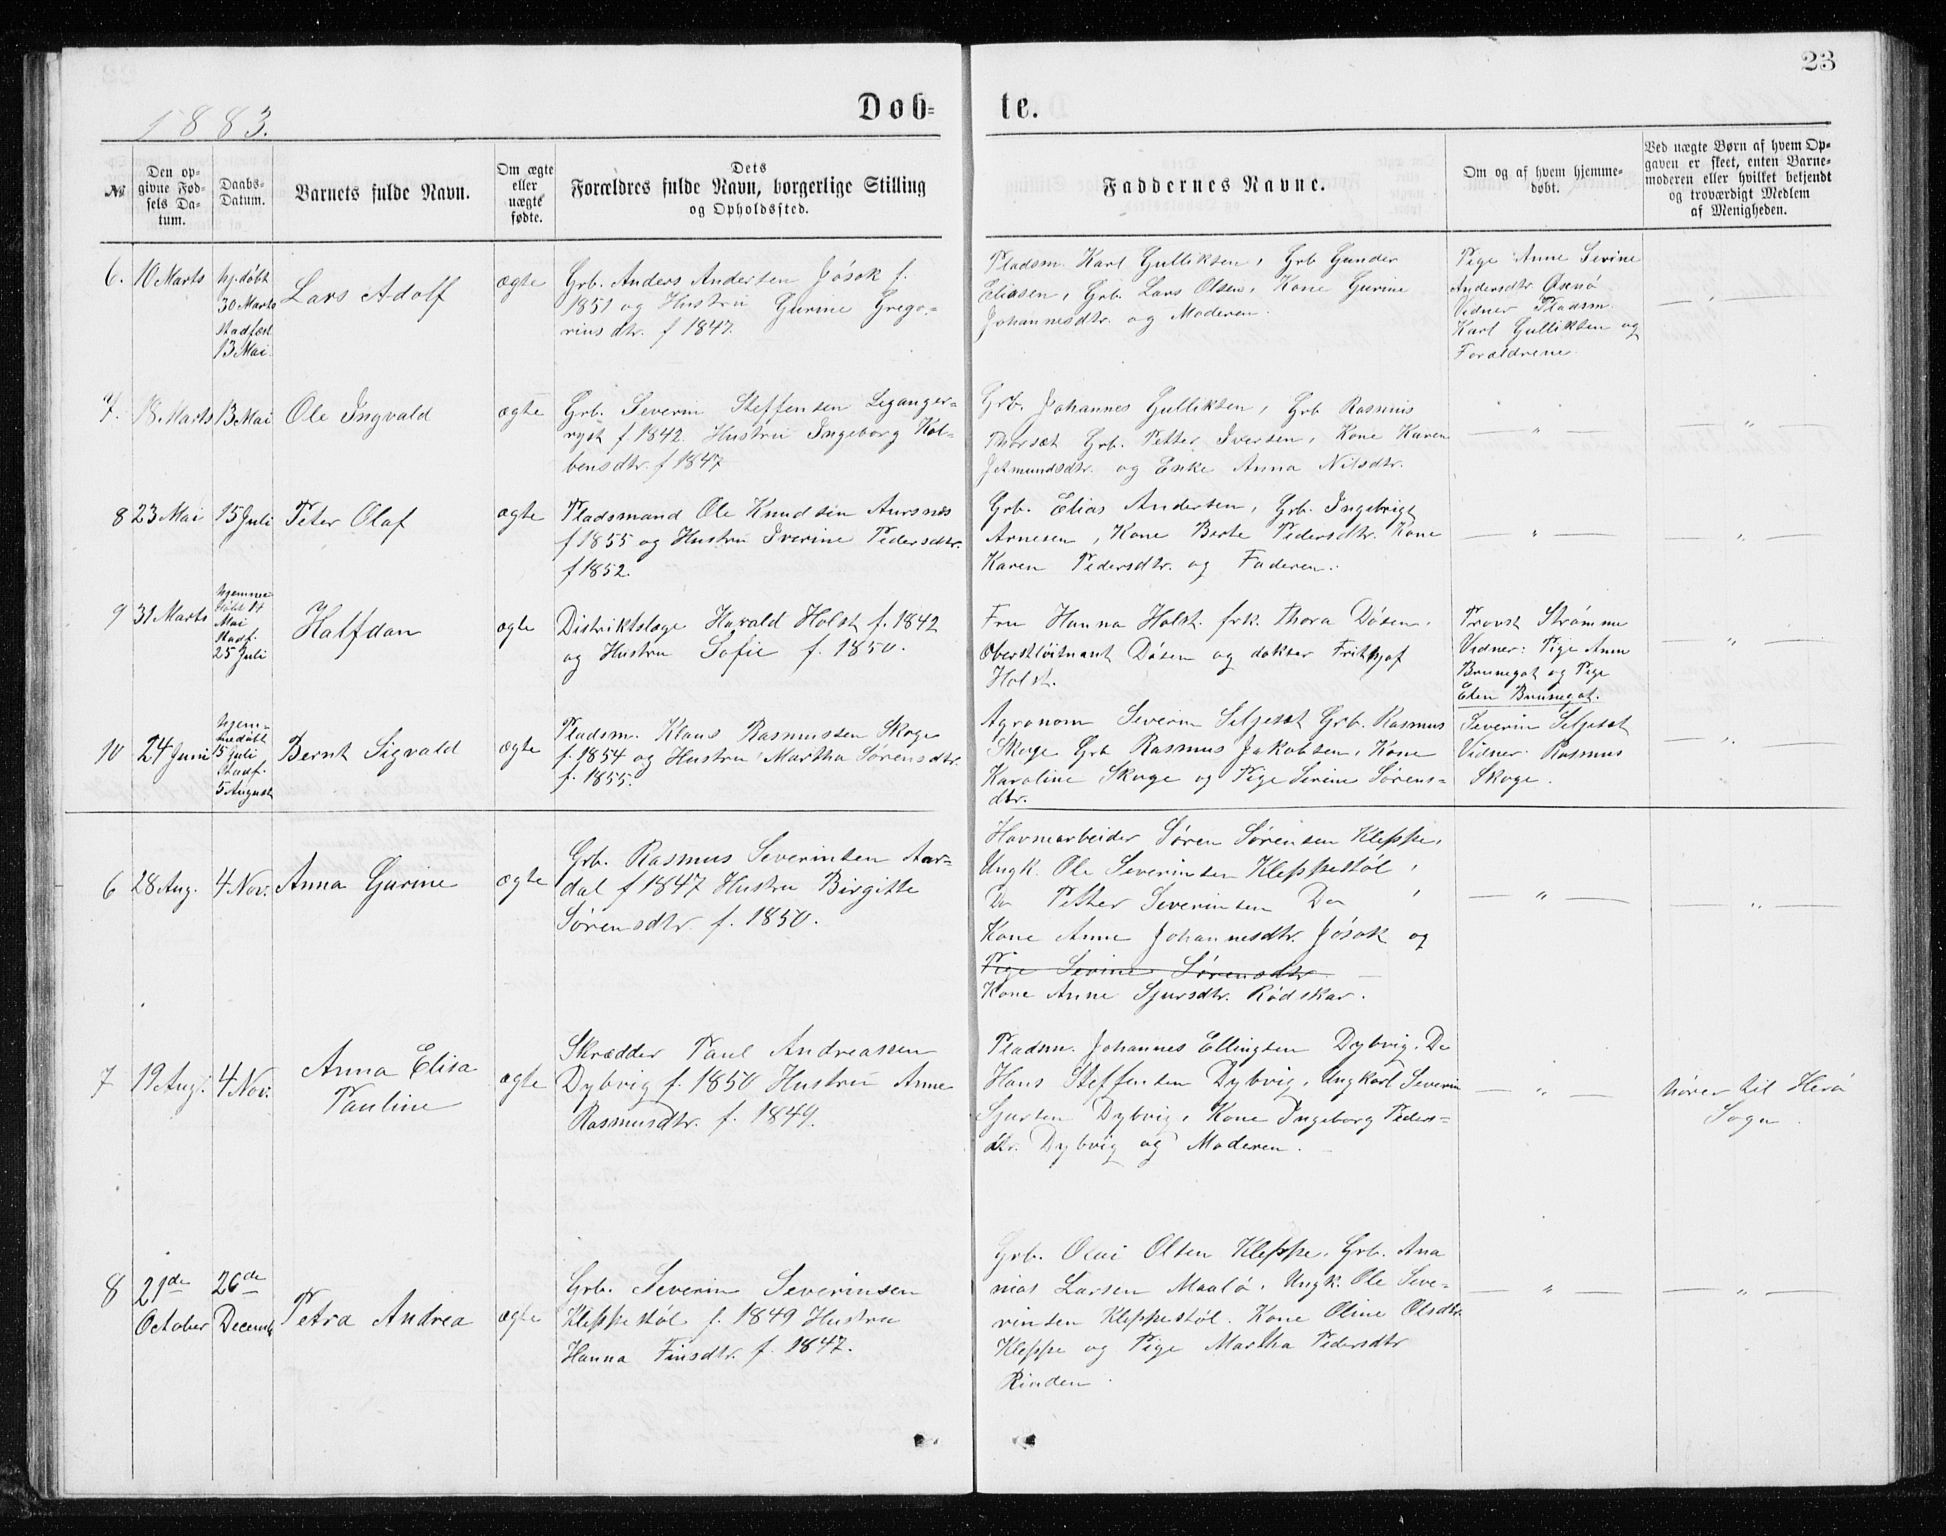 23
1883.
Døb-
te.
No
Den op-
givne Fød-
sels Da-
tum.
Daabs-
Datum.
Barnets fulde Navn.
Om ægte
eller
uægte
fødte.
Dets
Forældres fulde Navn, borgerlige Stilling
og Opholdssted.
Faddernes Navne.
Om og af hvem hjemme-
døbt.
Ved uægte Børn af hvem Op-
gaven er skeet, enten Barne-
moderen eller hvilket bekjendt
og troværdigt Medlem
af Menigheden.
6.
10 Marts
hj.døbt
30 Marts
stadfæst
13 Mai.
Lars Adolf
ægte
Grb. Anders Andersen Jøsok f.
1851 og Hustru Gurine Grego-
riusdtr. f 1847.
Pladsm. Karl Gulliksen, Grb Gunder
Eliasen, Grb. Lars Olsen, Kone Gurine
Johannesdtr. og Moderen.
Pige Anne Serine
Andersdtr.
Vidner Pladsm.
Karl Gulliksen og
Forældrene.
— " —
7.
18 Marts
13 Mai
Ole Ingvald
ægte
Grb. Severin Steffensen Leganger-
f 1842. Hustru Ingeborg Kol-
bensdtr. f 1847
Grb. Johannes Gulliksen, Grb Rasmus
Thorsæt Grb. Petter Iversen, Kone Karen
Jetmundsdtr. og Enke Anna Nilsdtr.
— " —
— " —
8
23 Mai
15 Juli
Peter Olaf
ægte
Pladsmand Ole Knudsen Aursnes
f 1855 og Hustru Iverine Pedersdtr.
f 1852.
Grb. Elias Andersen, Grb. Ingebrigt
Arnesen, Kone Berte Pedersdtr. Kone
Karen Pedersdtr. og Faderen.
— " —
— " —
9
31 Marts
hjemme
døbt 14
Mai
Stadf.
25 Juli
Halfdan
ægte
Distriktslæge Harald Holst f. 1842
og Hustru Sofie f. 1850.
Fru Hanna Holst. frk. Thora Døsen,
Oberstløitnant Døsen og doktor Frithjof
Holst.
Provst Strømme
Vidner: Pige Anne
Brunegot og Pige
Brunegot.
— " —
10
24 Juni
hjem-
medøbt
15 Juli
Stadf.
5 August
Bernt Sigvald
ægte
Pladsm. Klaus Rasmussen Skoge
f. 1854 og Hustru Martha Sørensdtr.
f. 1855.
Agronom Severin Seljesæt Grb. Rasmus
Skoge Grb Rasmus Jakobsen, Kone
Karoline Skoge og Pige Serine Sørens-
dtr.
Severin Seljesæt
Vidner. Rasmus
Skoge.
— " —
6
28 Aug.
4 Nov.
Anna Gurine
ægte
Grb. Rasmus Severinsen Aar-
dal f 1847 Hustru Birgitte
Sørensdtr f. 1850.
Havnearbeider Søren Sørensen Kleppe,
Ungk. Ole Severinsen Kleppestøl,
Do Petter Severinsen Do,
Kone Anne Johannesdtr. Jøsok og
Pige Serine Sørensdtr.
Kone Anne Sjursdtr. Rødskar.
— " —
— " —
7
19 Aug.
4 Nov.
Anna Elisa
Pauline
ægte
Skrædder Paul Andreassen
Dybvig f. 1850 Hustru Anne
Rasmusdtr. f. 1849.
Pladsm. Johannes Ellingsen Dybvig. Do
Hans Steffensen Dybvig, Ungkarl Severin
Sjursen Dybvig, Kone Ingeborg Peders-
dtr. Dybvig og Moderen.
— " —
hører til Herø
Sogn.
8
21de
October
26de
Decemb
Petra Andrea
ægte
Grb. Severin Severinsen
Kleppestøl f. 1849 Hustru
Hanna Finsdtr. f. 1847.
Grb. Olai Olsen Kleppe, Grb. Ana
nias Larsen Maalø, Ungk. Ole Seve-
rinsen Kleppestøl. Kone Oline Olsdtr.
Kleppe og Pige Martha Pedersdtr
Rinden.
— " —
— " —